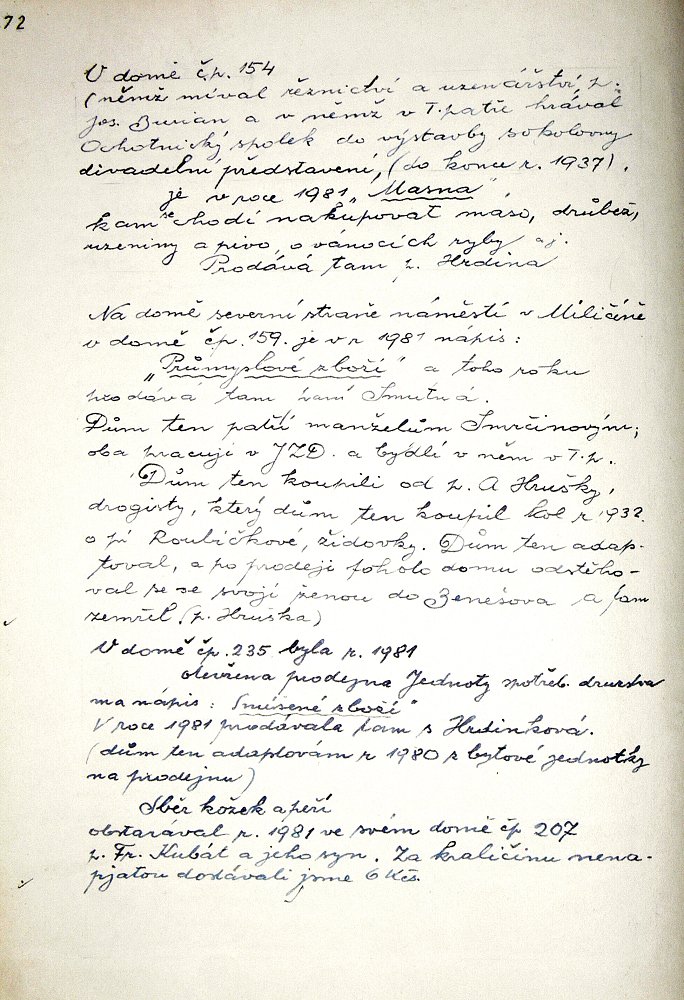 72
V domě č.p. 154
(němž míval řeznictví a uzenářství, p.
Jos. Burian a v němž v I. patře hrával
Ochotnický spolek do výstavby sokolovny
divadelní představení, (do konce r. 1937).
je v roce 1981 „Masna",
kam se chodí nakupovat maso, drůbež,
uzeniny a pivo, o vánocích ryby aj.
Prodává tam p. Hrdina
Na domě severní straně náměstí v Miličíně
v domě čp. 159. je v r 1981 nápis:
„Průmyslové zboží" a toho roku
prodává tam paní Smutná.
Dům ten patří manželům Smrčinovým;
oba pracují v JZD. a bydlí v něm v I. p.
Dům ten koupili od p. A Hrušky,
drogisty, který dům ten koupil kol r 1932.
o pí Roubíčkové, židovky. Dům ten adap-
toval, a po prodeji tohoto domu odstěho-
val se se svojí ženou do Benešova a tam
zemřel. (p. Hruška)
V domě čp. 235 byla r. 1981
otevřena prodejna Jednoty spotřeb. družstva
má nápis: „Smíšené zboží"
V roce 1981 prodávala tam s Hrdinková.
(dům ten adaptován r 1980 z bytové jednotky
na prodejnu)
Sběr kožek a peří
obstarával r. 1981 ve svém domě čp 207
p. Fr. Kubát a jeho syn. Za kraličinu nena-
pjatou dostávali jsme 6 Kčs.